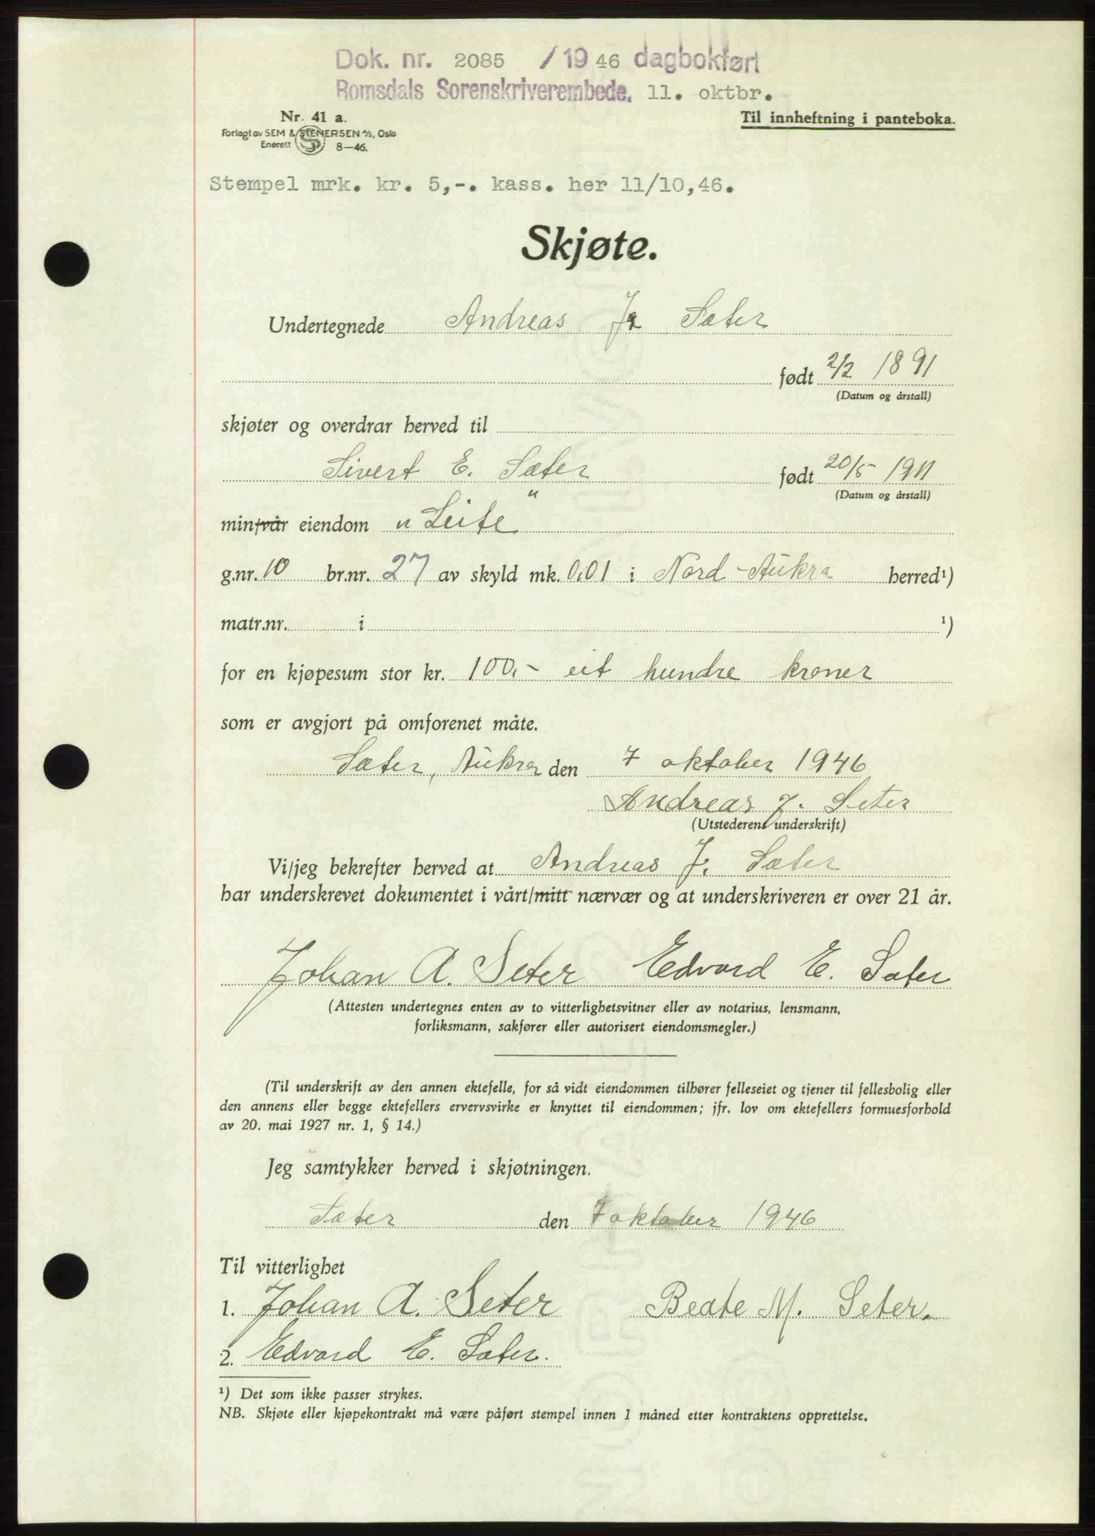 Dok. nr. 2085 /19 46 dagbokført
Romsdals Sorenskriverembede. 11. oktbr.
Nr. 41 a.
Til innheftning i panteboka.
Forlagt av SEM & STENERSEN A/S, Oslo
Enerett 8—46.
Stempel mrk. kr. 5,-. kass. her 11/10,46.
Skjøte.
Undertegnede Andreas J. Sæter
født 2/2 1891
(Datum og årstall)
skjøter og overdrar herved til
Sivert E. Sæter født 20/5 1911
(Datum og årstall)
min/vår eiendom "Leite"
g.nr. 10 br.nr. 27 av skyld mk. 0,01 i Nord-Aukra herred¹)
matr.nr. i ¹)
for en kjøpesum stor kr. 100,- eit hundre kroner
som er avgjort på omforenet måte.
Sæter, Aukra den 7 oktober 1946
Andreas J. Seter
(Utstederens underskrift)
Vi/jeg bekrefter herved at Andreas J. Sæter
har underskrevet dokumentet i vårt/mitt nærvær og at underskriveren er over 21 år.
Johan A. Seter Edvard E. Sæter
(Attesten undertegnes enten av to vitterlighetsvitner eller av notarius, lensmann,
forliksmann, sakfører eller autorisert eiendomsmegler.)
(Til underskrift av den annen ektefelle, for så vidt eiendommen tilhører felleseiet og tjener til fellesbolig eller
den annens eller begge ektefellers ervervsvirke er knyttet til eiendommen; jfr. lov om ektefellers formuesforhold
av 20. mai 1927 nr. 1, § 14.)
Jeg samtykker herved i skjøtningen.
Sæter den 7 oktober 1946
Til vitterlighet
1. Johan A. Seter Beate M. Seter.
2. Edvard E. Sæter.
¹) Det som ikke passer strykes.
NB. Skjøte eller kjøpekontrakt må være påført stempel innen 1 måned etter kontraktens opprettelse.